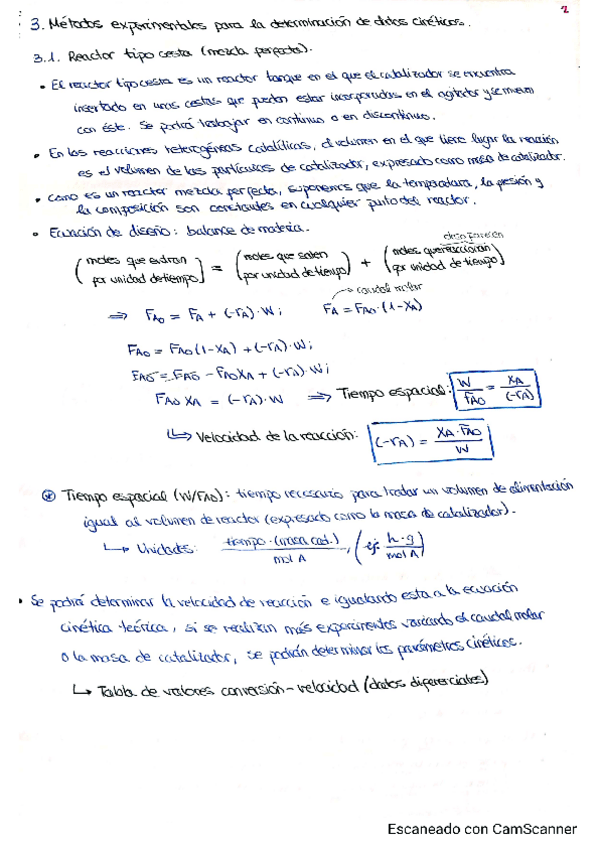 2
3. Métodos experimentales para la determinación de datos cinéticos.
3.1. Reactor tipo cesta (mezcla perfecta).
• El reactor tipo cesta es un reactor tanque en el que el catalizador se encuentra
insertado en unas cestas que pueden estar incorporadas en el agitador y se mueven
con éste. Se podrá trabajar en continuo o en discontinuo.
• En las reacciones heterogéneas catalíticas, el volumen en el que tiene lugar la reacción
es el volumen de las partículas de catalizador, expresado como masa de catalizador.
• Como es un reactor mezcla perfecta, suponemos que la temperatura, la presión y
la composición son constantes en cualquier punto del reactor.
• Ecuación de diseño: balance de materia.
desaparecen
(moles que entran por unidad de tiempo) = (moles que salen por unidad de tiempo) + (moles que reaccionan por unidad de tiempo)
→ caudal molar
⇒ FAo = FA + (-rA)·W ; FA = FAo·(1-XA)
FAo = FAo(1-XA) + (-rA)·W ;
FAo = FAo - FAoXA + (-rA)·W ;
FAo XA = (-rA)·W ⇒ Tiempo espacial: W/FAo = XA/(-rA)
↳ Velocidad de la reacción: (-rA) = XA·FAo/W
* Tiempo espacial (W/FAo): tiempo necesario para tratar un volumen de alimentación
igual al volumen de reactor (expresado como la masa de catalizador).
↳ Unidades: tiempo·(masa cat.)/mol A, (ej: h·g/mol A)
• Se podrá determinar la velocidad de reacción e igualando esta a la ecuación
cinética teórica, si se realizan más experimentos variando el caudal molar
o la masa de catalizador, se podrán determinar los parámetros cinéticos.
↳ Tabla de valores conversión-velocidad (datos diferenciales)
Escaneado con CamScanner